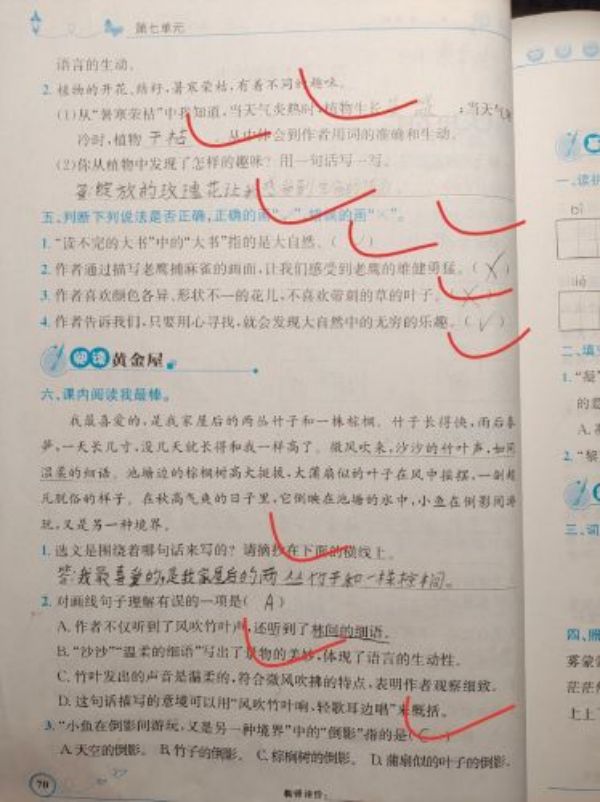 第七单元
语言的生动。
2. 植物的开花、结籽,暑寒荣枯,有着不同的趣味。
(1)从“暑寒荣枯”中我知道,当天气炎热时,植物生长 ;当天气寒
冷时,植物 干枯 。从中体会到作者用词的准确和生动。
(2)你从植物中发现了怎样的趣味?用一句话写一写。
绽放的玫瑰花让我感受到
五、判断下列说法是否正确,正确的画“✓”,错误的画“×”。
1. “读不完的大书”中的“大书”指的是大自然。(✓)
2. 作者通过描写老鹰捕麻雀的画面,让我们感受到老鹰的雄健勇猛。(X)
3. 作者喜欢颜色各异、形状不一的花儿,不喜欢带刺的草的叶子。(X)
4. 作者告诉我们,只要用心寻找,就会发现大自然中的无穷的乐趣。(✓)
阅读黄金屋
六、课内阅读我最棒。
我最喜爱的,是我家屋后的两丛竹子和一株棕榈。竹子长得快,雨后春
笋,一天长几寸,没几天就长得和我一样高了。微风吹来,沙沙的竹叶声,如同
温柔的细语。池塘边的棕榈树高大挺拔,大蒲扇似的叶子在风中摇摆,一副超
凡脱俗的样子。在秋高气爽的日子里,它倒映在池塘的水中,小鱼在倒影间游
玩,又是另一种境界。
1. 选文是围绕着哪句话来写的?请摘抄在下面的横线上。
答:我最喜爱的,是我家屋后的两丛竹子和一株棕榈。
2. 对画线句子理解有误的一项是( A )
A. 作者不仅听到了风吹竹叶声,还听到了林间的细语。
B. “沙沙”“温柔的细语”写出了景物的美妙,体现了语言的生动性。
C. 竹叶发出的声音是温柔的,符合微风吹拂的特点,表明作者观察细致。
D. 这句话描写的意境可以用“风吹竹叶响,轻歌耳边唱”来概括。
3. “小鱼在倒影间游玩,又是另一种境界”中的“倒影”指的是( C )
A. 天空的倒影。 B. 竹子的倒影。 C. 棕榈树的倒影。 D. 蒲扇似的叶子的倒影。
70
教师评价:
一、读拼
bì
二、填
1. “凝”
的意
A.
2. “
三、词
四、照
雾蒙蒙
茫茫
上上下